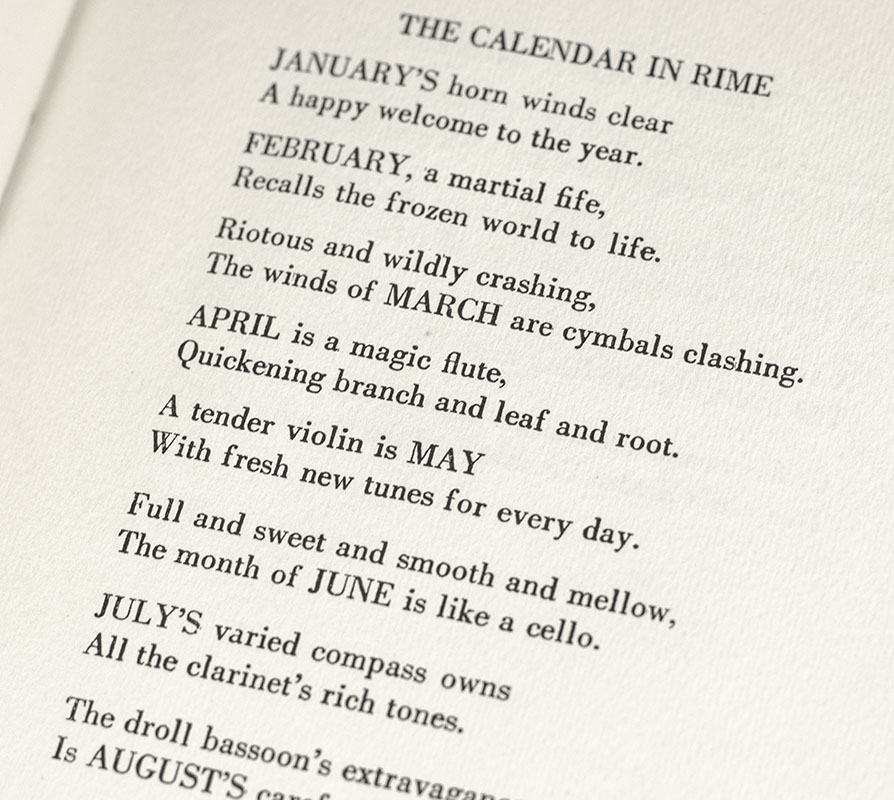 THE CALENDAR IN RIME
JANUARY'S horn winds clear
A happy welcome to the year.
FEBRUARY, a martial fife,
Recalls the frozen world to life.
Riotous and wildly crashing,
The winds of MARCH are cymbals clashing.
APRIL is a magic flute,
Quickening branch and leaf and root.
A tender violin is MAY
With fresh new tunes for every day.
Full and sweet and smooth and mellow,
The month of JUNE is like a cello.
JULY'S varied compass owns
All the clarinet's rich tones.
The droll bassoon's
Is AUGUST'S